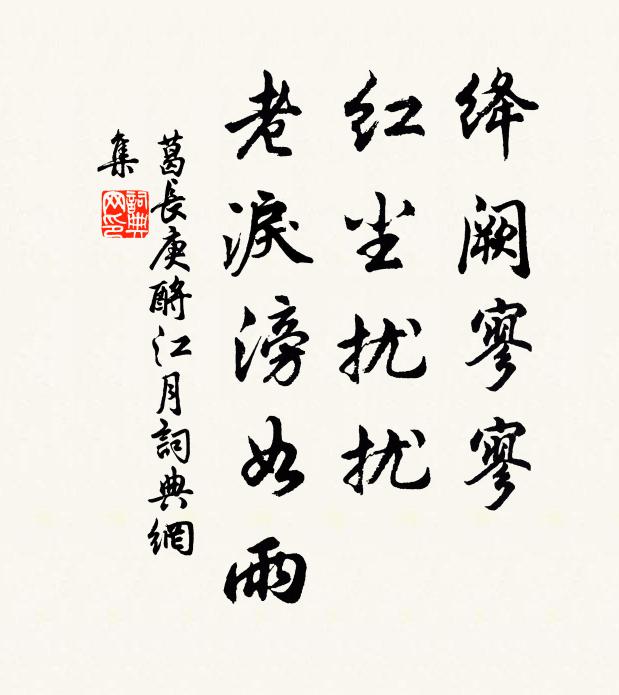 绛阙寥寥
红尘扰扰
老淚滂如雨
葛長庚酹江月詞典網
集
詞典
网印